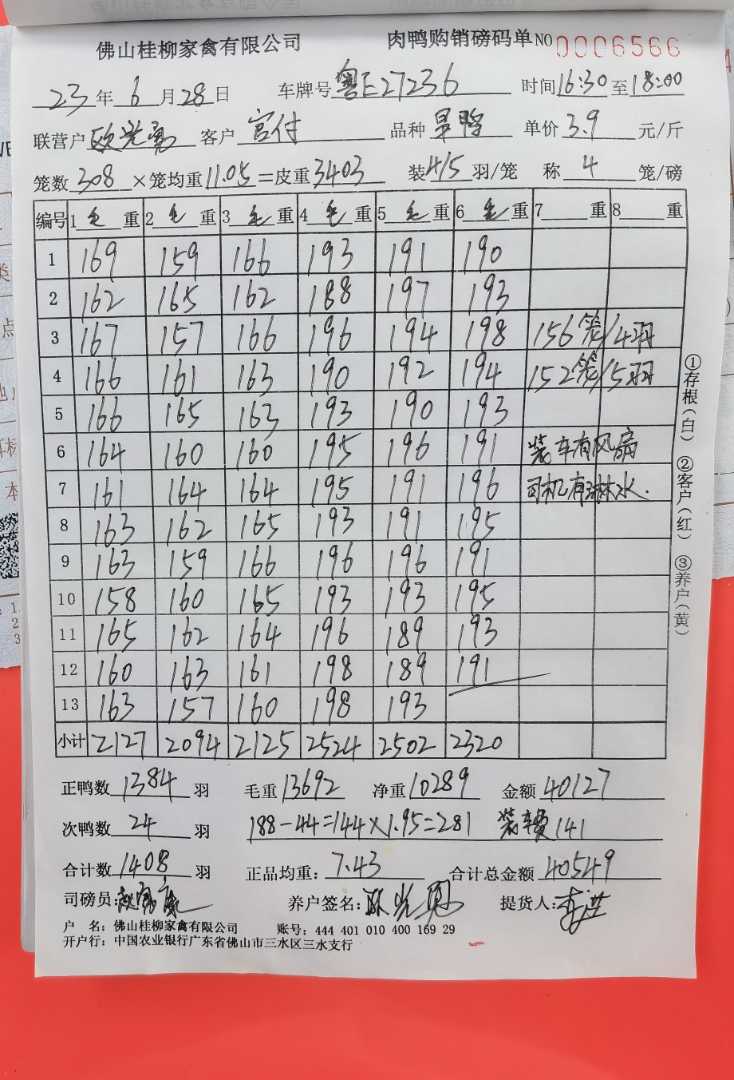 佛山桂柳家禽有限公司 肉鸭购销磅码单 NO 0006566
23 年 6 月 28 日 车牌号 粤E27236 时间 16:30 至 18:00
联营户 欧光勇 客户 官付 品种 旱鸭 单价 3.9 元/斤
笼数 308 ×笼均重 11.05 =皮重 3403 装 4/5 羽/笼 称 4 笼/磅
编号 1 毛 重 2 毛 重 3 毛 重 4 毛 重 5 毛 重 6 毛 重 7 重 8 重
1 169 159 166 193 191 190
2 162 165 162 188 197 193
3 167 157 166 196 194 198 156笼/4羽
4 166 161 163 190 192 194 152笼/5羽
5 166 165 163 193 190 193
6 164 160 160 195 196 191 装车有风扇
7 161 164 164 195 191 196 司机有淋水.
8 163 162 165 193 191 195
9 163 159 166 196 196 191
10 158 160 165 193 193 195
11 165 162 164 196 189 193
12 160 163 161 198 189 191
13 163 157 160 198 193
小计 2127 2094 2125 2524 2502 2320
正鸭数 1384 羽 毛重 13692 净重 10289 金额 40127
次鸭数 24 羽 188-44=144×1.95=281 装车费141
合计数 1408 羽 正品均重: 7.43 合计总金额 40549
司磅员: 养户签名: 欧光勇 提货人: 李洪
户 名: 佛山桂柳家禽有限公司 账号: 444 401 010 400 169 29
开户行: 中国农业银行广东省佛山市三水区三水支行
①存根(白) ②客户(红) ③养户(黄)